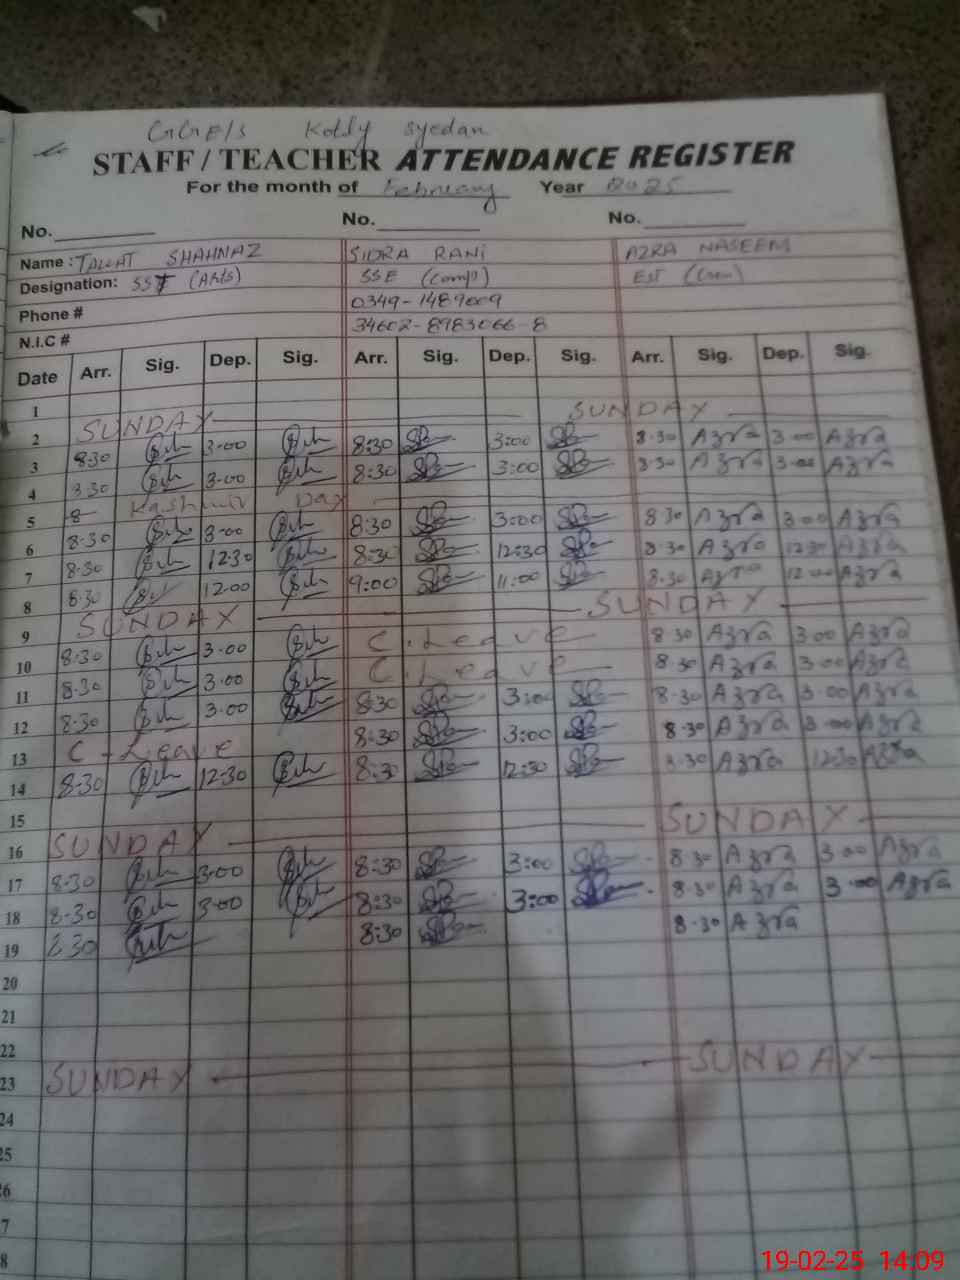 GGE/S Kotly Syedan
STAFF / TEACHER ATTENDANCE REGISTER
For the month of February Year 2025
No. No. No.
Name : TALLAT SHAHNAZ SIDRA RANI AZRA NASEEM
Designation: SST (Arts) SSE (Comp) EST
Phone # 0349-1489009
N.I.C # 34602-8983066-8
Date Arr. Sig. Dep. Sig. Arr. Sig. Dep. Sig. Arr. Sig. Dep. Sig.
1
2 SUNDAY SUNDAY
3 8:30 3-00 8:30 3:00 8-30 Azra 3-00 Azra
4 8:30 3-00 8:30 3:00 8-30 Azra 3-00 Azra
5 8 Kashmir Day
6 8-30 3-00 8:30 3:00 8-30 Azra 3-00 Azra
7 8-30 12-30 8:30 12:30 8-30 Azra 12-30 Azra
8 8-30 12-00 9:00 11:00 8-30 Azra 12-00 Azra
9 SUNDAY SUNDAY
10 8-30 3-00 C. Leave 8-30 Azra 3-00 Azra
11 8-30 3-00 C. Leave 8-30 Azra 3-00 Azra
12 8-30 3-00 8:30 3:00 8-30 Azra 3-00 Azra
13 C-Leave 8:30 3:00 8-30 Azra 3-00 Azra
14 8-30 12-30 8:30 12:30 8-30 Azra 12-30 Azra
15
16 SUNDAY SUNDAY
17 8-30 3-00 8:30 3:00 8-30 Azra 3-00 Azra
18 8-30 3-00 8:30 3:00 8-30 Azra 3-00 Azra
19 30 8:30 8-30 Azra
20
21
22
23 SUNDAY SUNDAY
24
25
26
7
8
19-02-25 14:09